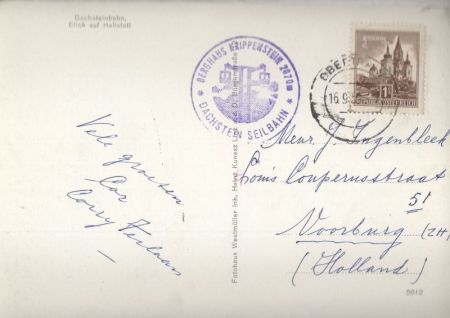 Dachsteinbahn,
Blick auf Hallstatt
BERGHAUS KRIPPENSTEIN 2070m
* DACHSTEIN SEILBAHN *
REPUBLIK ÖSTERREICH
1S
OBER
16.9
Vele groeten
Cas
Corry Verlaan
Fotohaus Westmüller Inh. Heinz Kunast
Meur. J. Ingenbleek
Louis Couperusstraat
51
Voorburg (ZH)
(Holland)